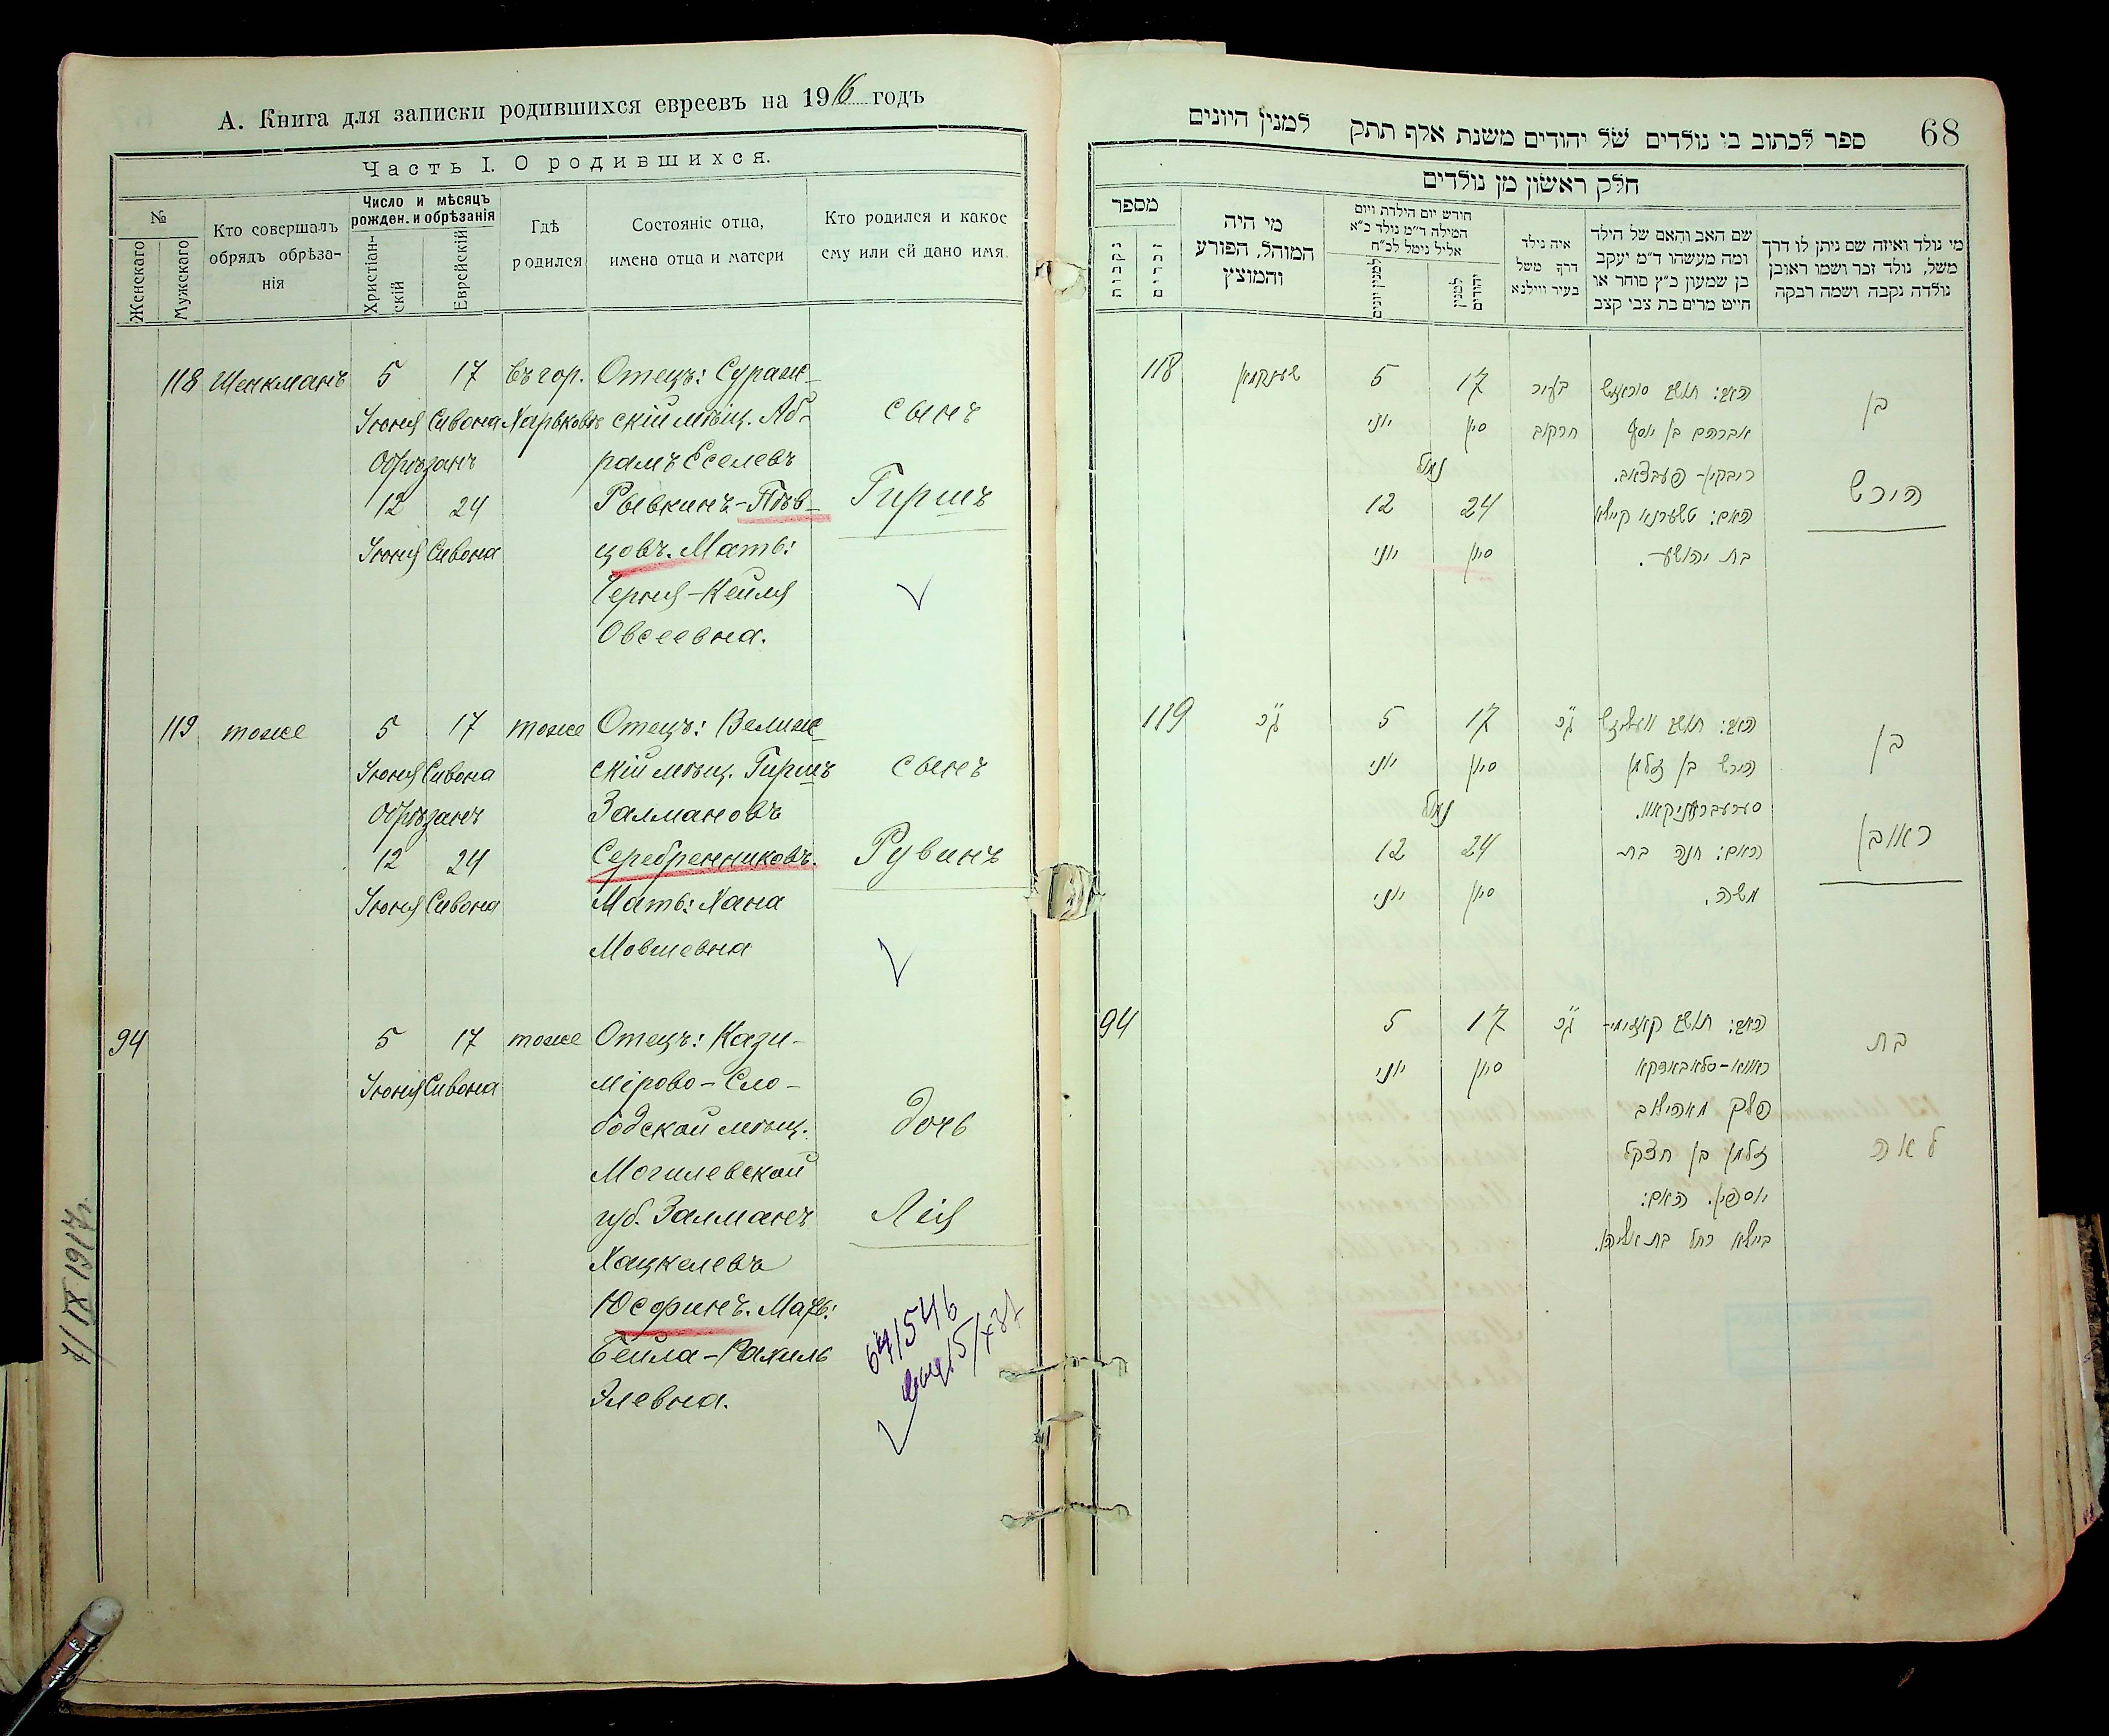 А. Книга для записки родившихся евреевъ на 1916 годъ
Часть I. О родившихся.
№
Женскаго
Мужскаго
Кто совершалъ
обрядъ обрѣза-
нія
Число и мѣсяцъ
рожден. и обрѣзанія
Христіан-
скій
Еврейскій
Гдѣ
родился
Состояніе отца,
имена отца и матери
Кто родился и какое
ему или ей дано имя.
118 Шенкманъ 5 17 въ гор. Отецъ: Сураж-
Іюня Сивона Харьковѣ скій мѣщ. Аб-
сынъ
Обрѣзанъ рамъ Еселевъ
12 24 Рывкинъ-Пѣв-
Гиршъ
Іюня Сивона цовъ. Мать:
Черня-Кейля
Овсеевна.
119 тоже 5 17 тоже Отецъ: Велиж-
Іюня Сивона скій мѣщ. Гиршъ сынъ
Обрѣзанъ Залмановъ
12 24 Серебренниковъ. Рувинъ
Іюня Сивона Мать: Хана
Мовшевна
94 5 17 тоже Отецъ: Кази-
Іюня Сивона мірово-Сло-
бодской мѣщ. дочь
Могилевской
губ. Залманъ Лея
Хацкелевъ
Юсфинъ. Мать:
Бейла-Рахиль
Элевна.
7/IX 1917г.
68
ספר לכתוב בו נולדים של יהודים משנת אלף תתק למנין היונים
חלק ראשון מן נולדים
מספר
נקבות
זכרים
מי היה
המוהל, הפורע
והמוצץ
חודש יום הילדת ויום
המילה ד״מ נולד כ״א
אליל ניטל לכ״ח
למנין יונים
למנין
יהודים
איה נילד
דרך משל
בעיר ווילנא
שם האב והאם של הילד
ומה מעשהו ד״מ יעקב
בן שמעון כ״ץ סוחר או
חייט מרים בת צבי קצב
מי נולד ואיזה שם ניתן לו דרך
משל, נולד זכר ושמו ראובן
נולדה נקבה ושמה רבקה
118 שענקמאן 5 17 בעיר האב: תושב סוראזש
יוני סיון חרקוב אברהם בן יוסף
בן
נמול ריבקין-פעבצאב.
12 24 האם: טשערניא קיילא
הירש
יוני סיון בת יהושע.
119 5 17 האב: תושב וועליזש
יוני סיון הירש בן זלמן
בן
נמול סערעברעניקאוו.
12 24 האם: חנה בת
ראובן
יוני סיון משה.
94 5 17 האב: תושב קאזימי-
בת
יוני סיון ראווא-סלאבאדקא
פלך מאהילוב
זלמן בן חצקל
לאה
יוספין. האם:
ביילא רחל בת אליהו.